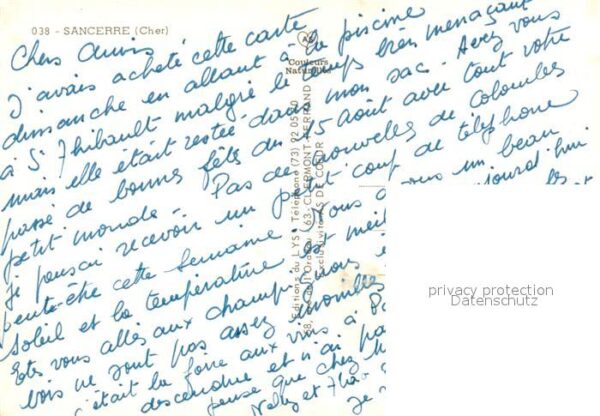 038 - SANCERRE (Cher)
Couleurs
Naturelles
Chers Amis
J'avais acheté cette carte
dimanche en allant à la piscine
à St Thibault malgré le temps très menaçant
mais elle était restée dans mon sac. Avez vous
passé de bonnes fêtes du 15 Août avec tout votre
petit monde. Pas de nouvelles de Colombes
je pensais recevoir un petit coup de téléphone
peut-être cette semaine. Nous un beau
soleil et la température est meil jourd'hui
Etes vous allés aux champi les
bois ne sont pas assez
c'était la foire aux vins à
descendre et n'ai pa
pense que chez
Nelly et
je
Editions du LYS - Téléphone (73) 92.05.70
63 - CLERMONT-FERRAND
Exclusivité AS DE COEUR
privacy protection
Datenschutz